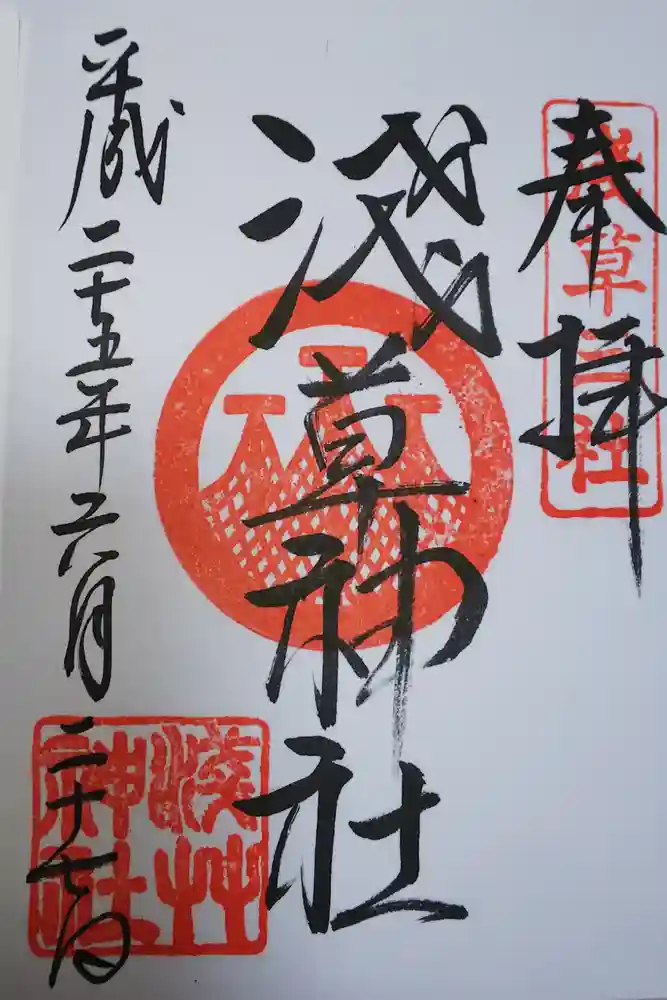 奉拝
浅草三社
淺草神社
平成二十五年六月二十七日
淺艸
神社